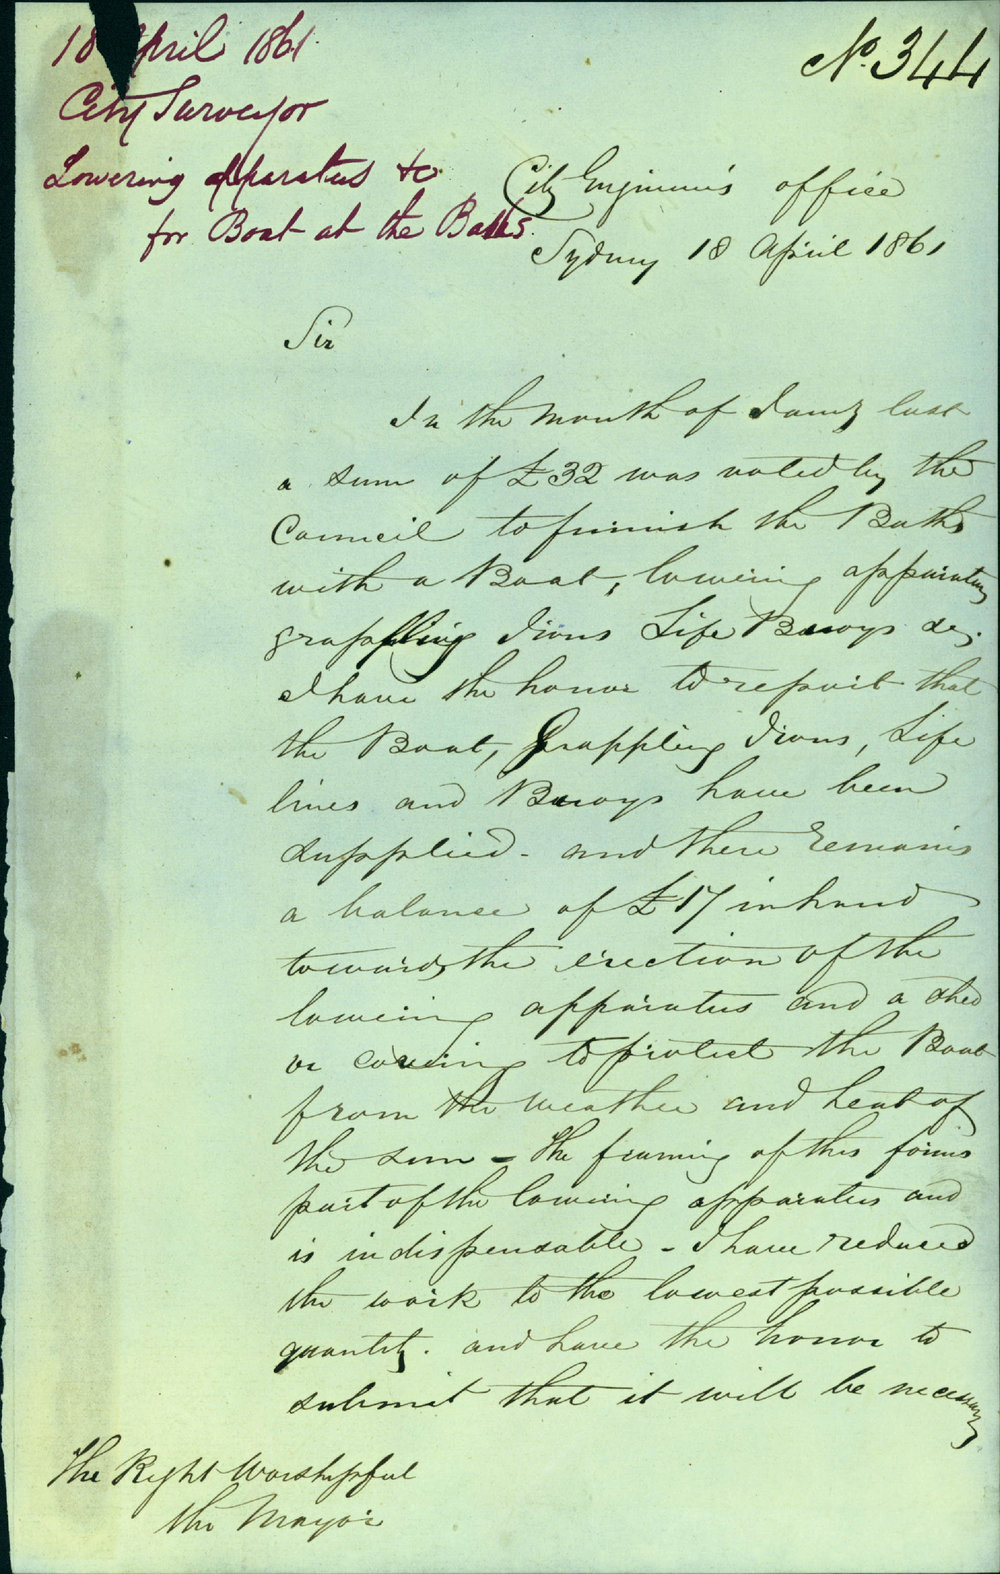 18 April 1861
City Surveyor
Lowering apparatus &c
for Boat at the Baths.
No. 344
City Engineer's office
Sydney 18 April 1861
Sir
In the month of Jany last
a sum of £32 was voted by the
Council to furnish the Baths
with a Boat, lowering apparatus
grappling Irons Life Buoys &c.
I have the honor to report that
the Boat, Grappling Irons, Life
lines and Buoys have been
supplied - and there remains
a balance of £17 in hand
towards the erection of the
lowering apparatus and a shed
or covering to protect the Boat
from the weather and heat of
the sun - the framing of this forms
part of the lowering apparatus and
is indispensable - I have reduced
the work to the lowest possible
quantity. and have the honor to
submit that it will be necessary
The Right Worshipful
the Mayor